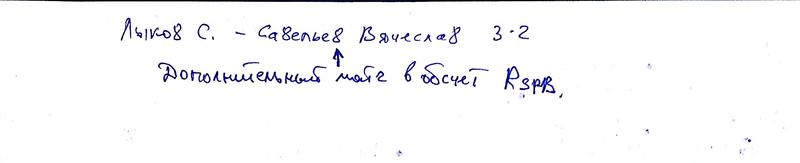 Лыков С. - Савельев Вячеслав 3-2
Дополнительный матч в обсчет RзрВ.